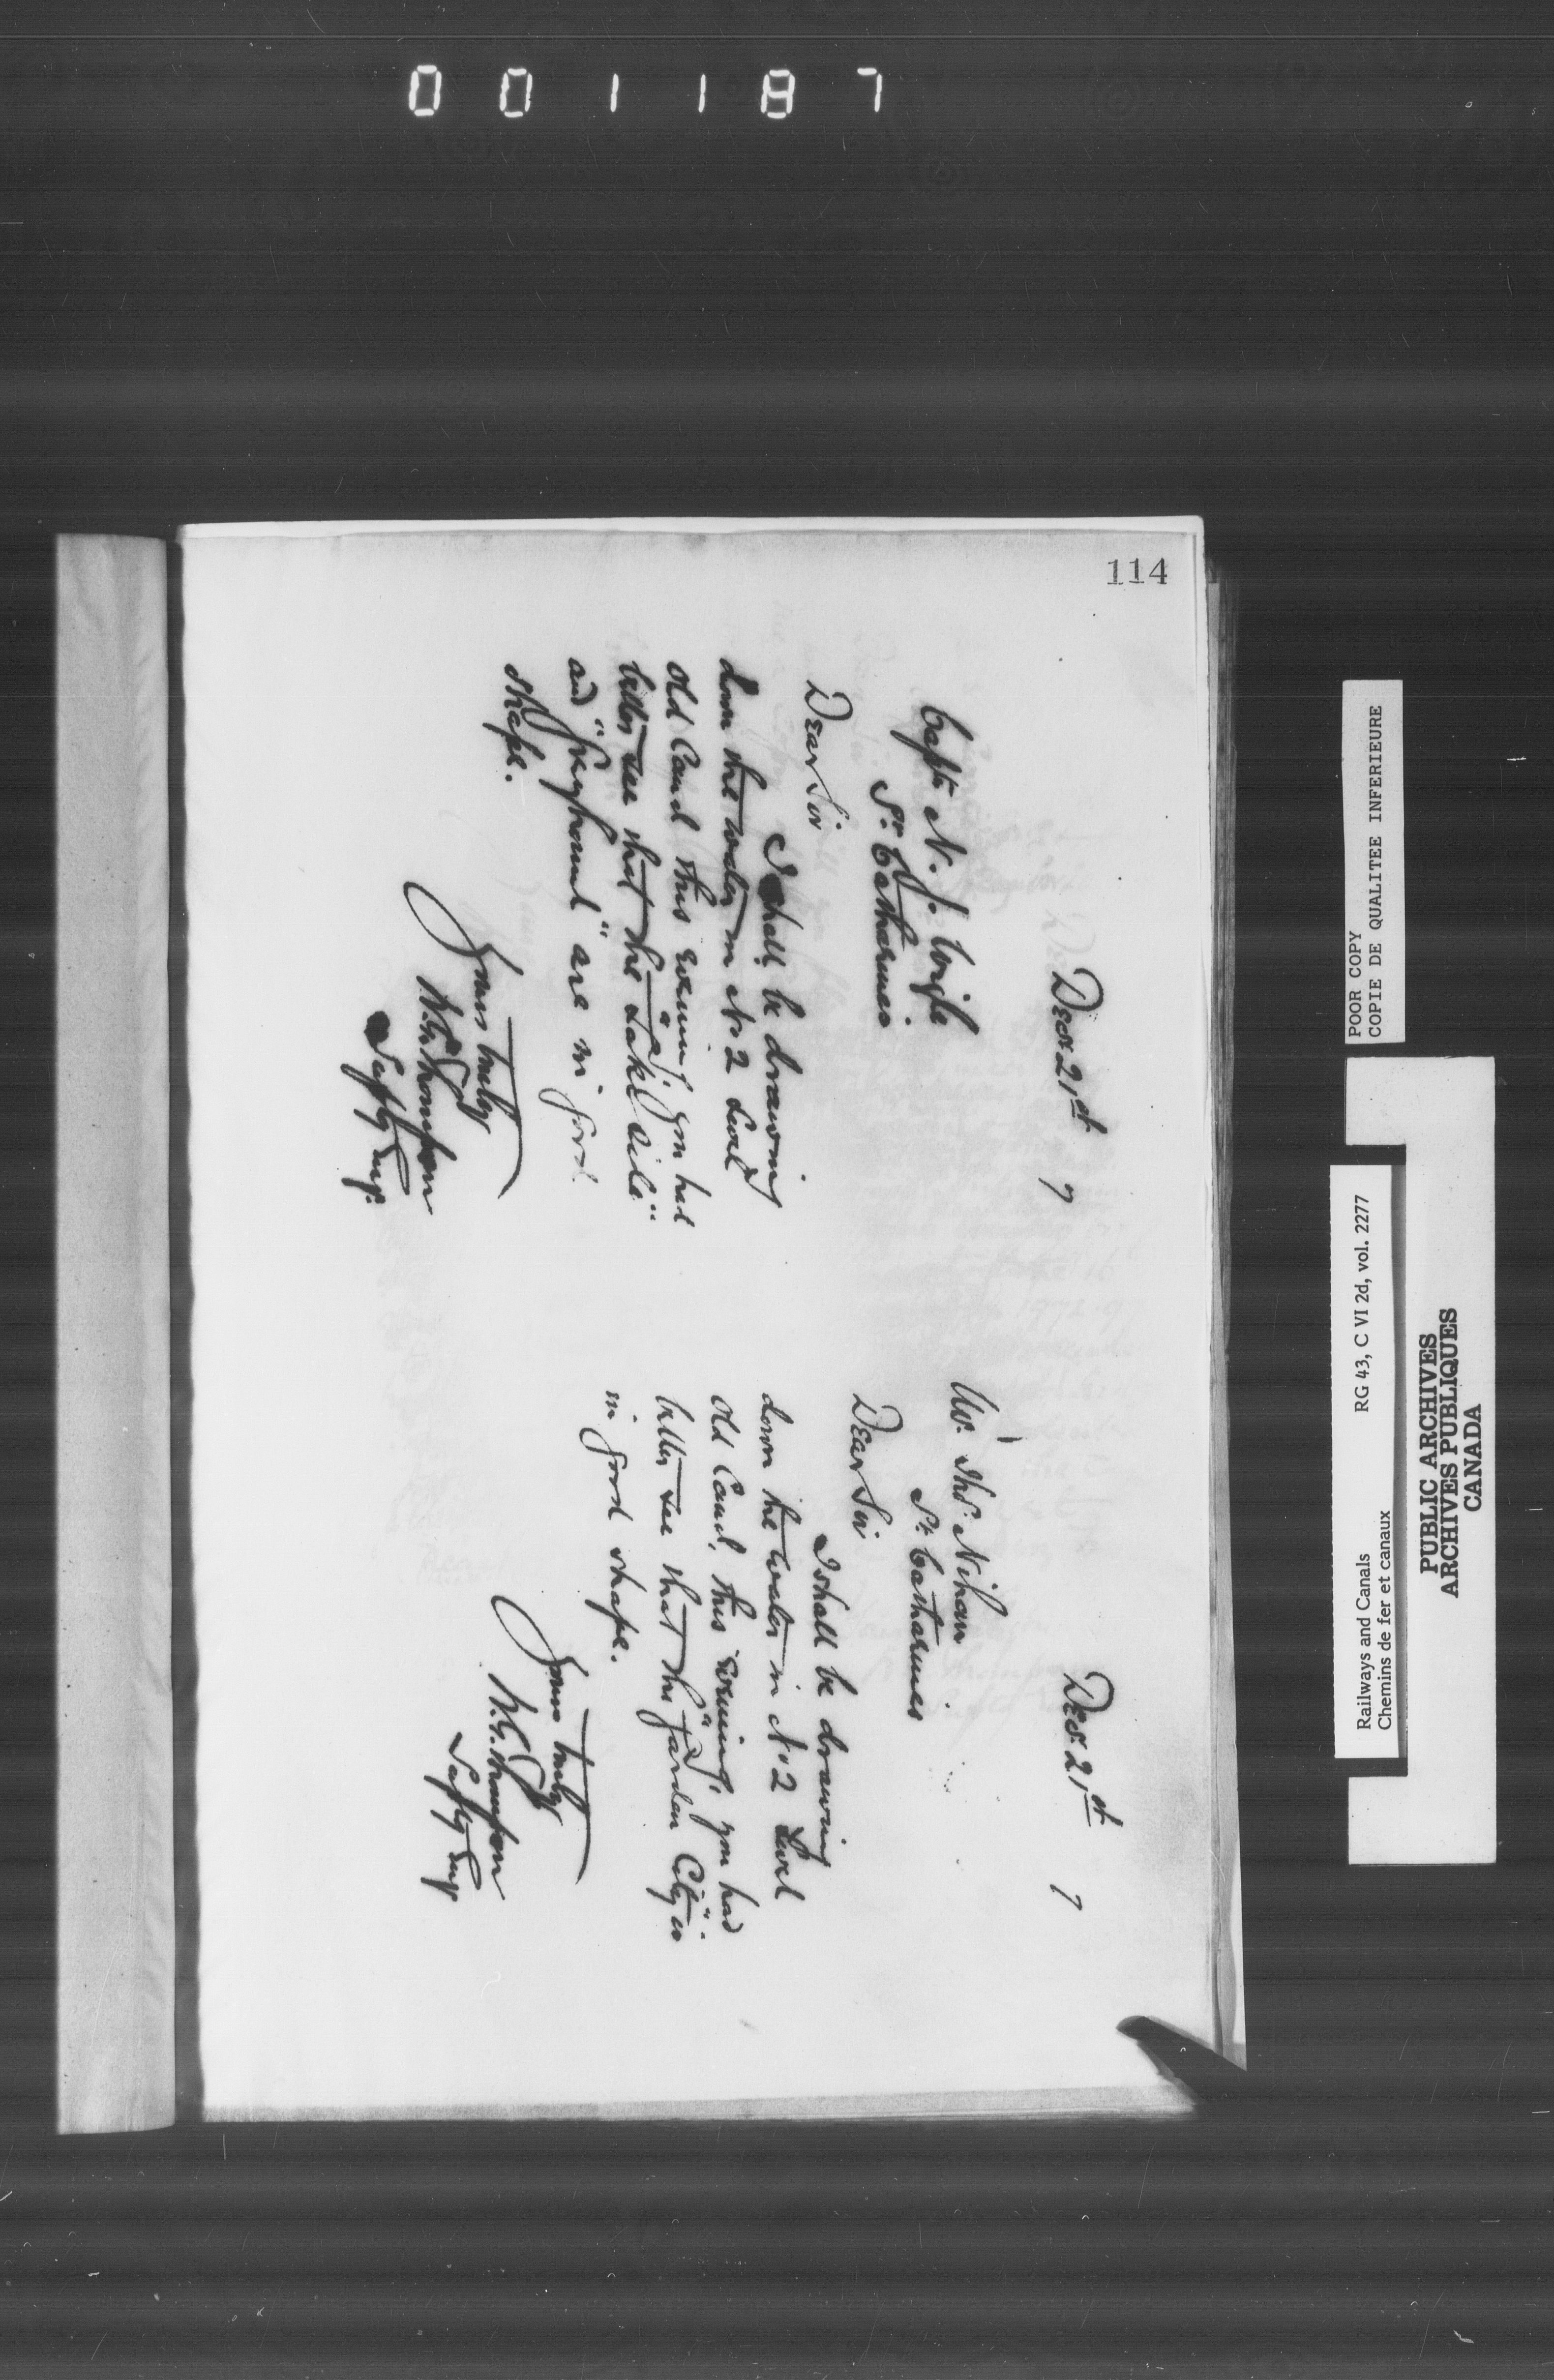 001187
114
Decr. 21st 7
Capt. N. J. Wigle
St. Catharines
Dear Sir
I shall be drawing
down the water in No 2 Level
Old Canal this evening. you had
better see that the "Lake Side"
and "Greyhound" are in good
shape.
Yours truly
W.G. Thompson
Supt'g Engr.
Dec. 21st 7
Mr. Thos. Nihan
St. Catharines
Dear Sir
I shall be drawing
down the water in No 2 Level
Old Canal, this evening, you had
better see that the "Garden City" is
in good shape.
Yours truly
W.G. Thompson
Supt'g Engr
POOR COPY
COPIE DE QUALITEE INFERIEURE
Railways and Canals RG 43, C VI 2d, vol. 2277
Chemins de fer et canaux
PUBLIC ARCHIVES
ARCHIVES PUBLIQUES
CANADA